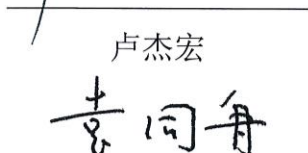 卢杰宏
同舟